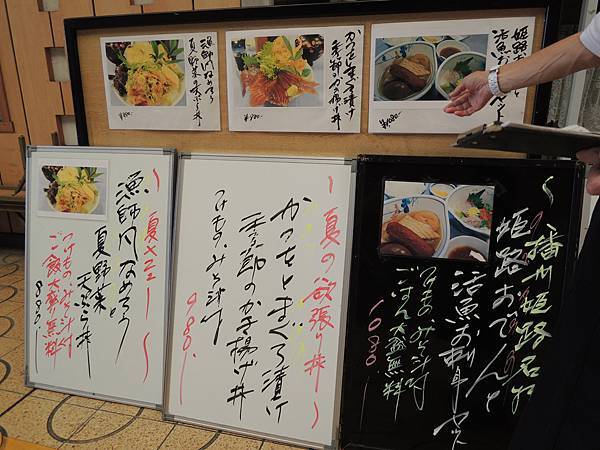 漁師風なめろう
夏野菜の天ぷら丼
¥880-
かつおとまぐろ漬け
季節のかき揚げ丼
¥980-
姫路おでんと
活魚お刺身セット
¥1080-
〜夏メニュー〜
漁師風なめろう
夏野菜
天ぷら丼
つけもの・みそ汁付
ご飯大盛り無料
880.
〜夏の欲張り丼〜
かつおとまぐろ漬け
季節のかき揚げ丼
つけもの・みそ汁付
980.
〜播州姫路名物
姫路おでんと
活魚お刺身セット
つけもの みそ汁付
ごはん大盛無料
1080.